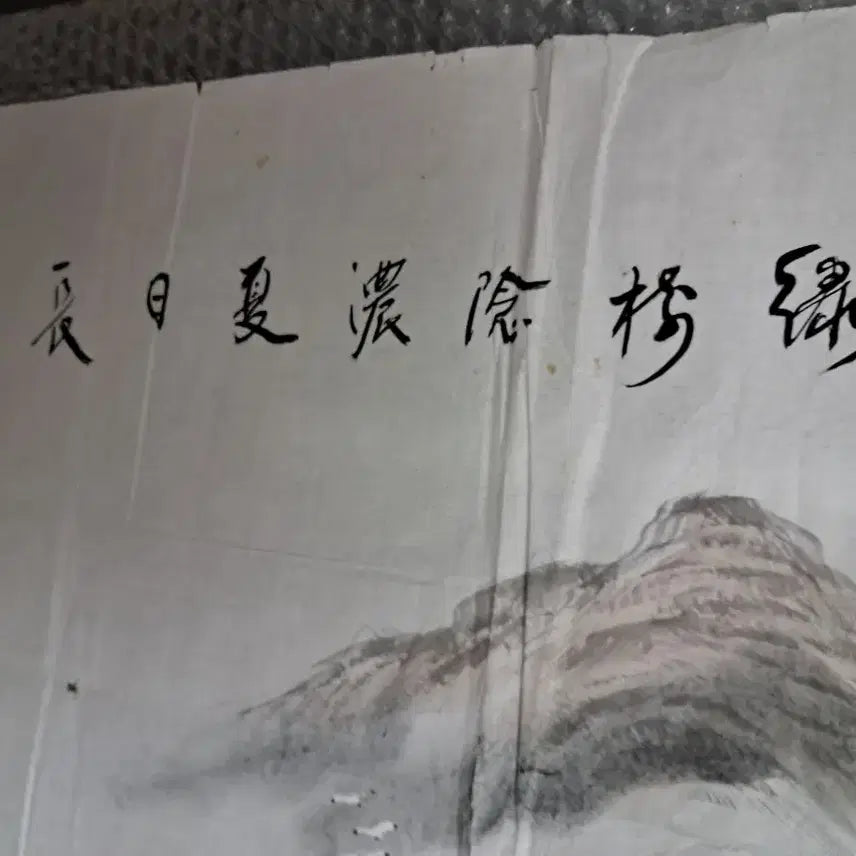 綠樹陰濃夏日長